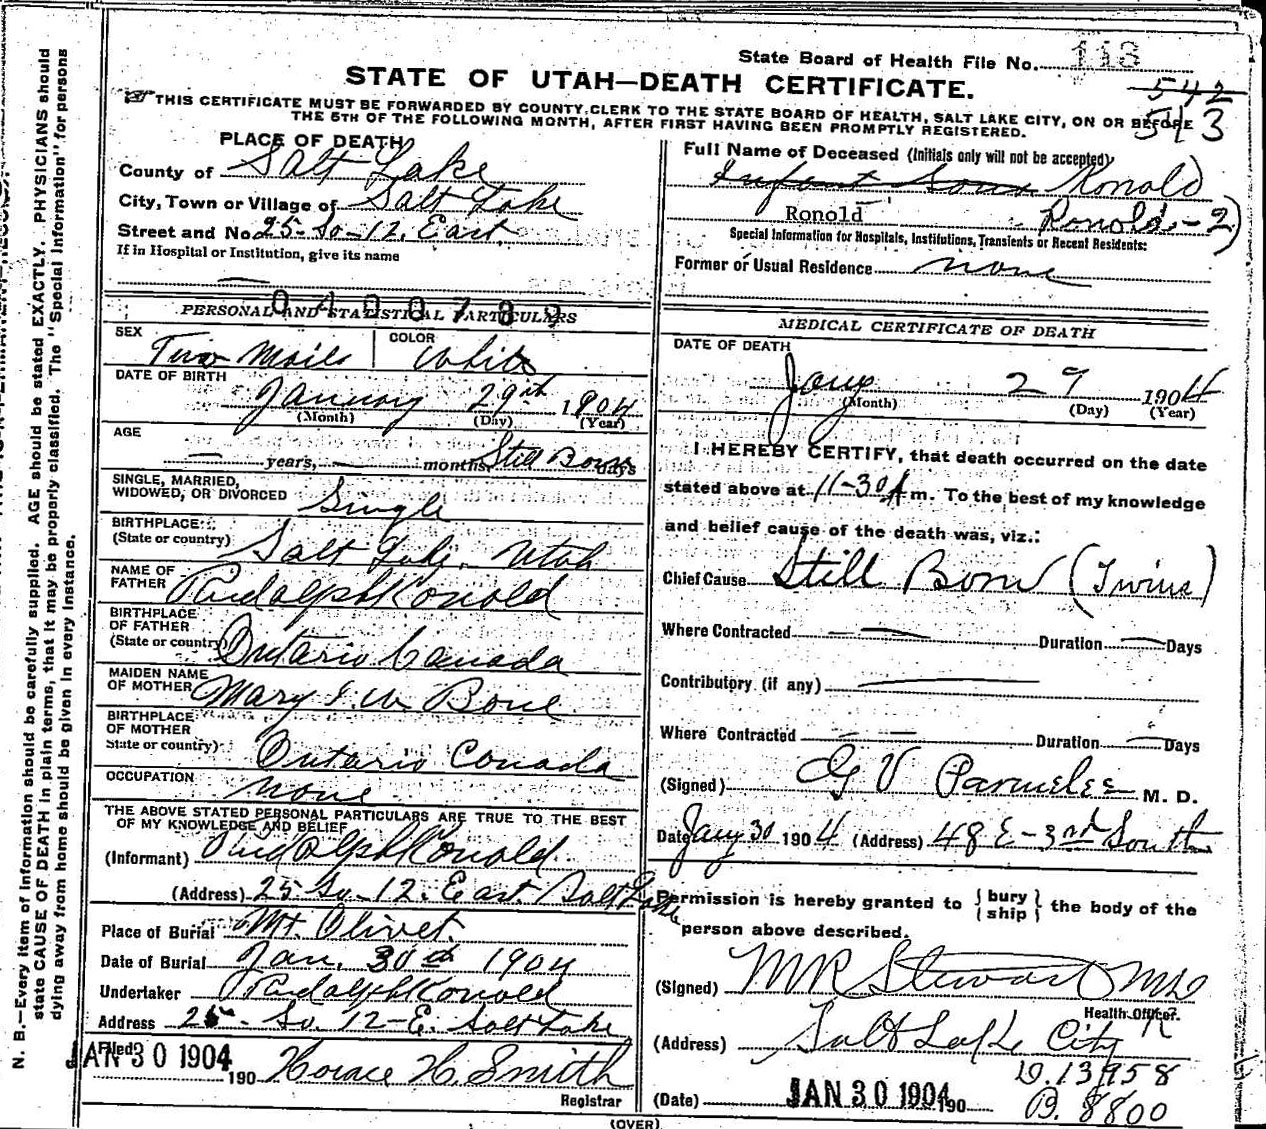 State Board of Health File No. 113
STATE OF UTAH—DEATH CERTIFICATE.
542
543
THIS CERTIFICATE MUST BE FORWARDED BY COUNTY CLERK TO THE STATE BOARD OF HEALTH, SALT LAKE CITY, ON OR BEFORE
THE 5TH OF THE FOLLOWING MONTH, AFTER FIRST HAVING BEEN PROMPTLY REGISTERED.
PLACE OF DEATH
County of Salt Lake
City, Town or Village of Salt Lake
Street and No. 25-So-12. East.
If in Hospital or Institution, give its name
—
Full Name of Deceased (Initials only will not be accepted)
Infant Sons Konold
Ronold Ronold-2)
Special Information for Hospitals, Institutions, Transients or Recent Residents:
Former or Usual Residence none
0400789
PERSONAL AND STATISTICAL PARTICULARS
SEX Two Males
COLOR White
DATE OF BIRTH
January 29th 1904
(Month) (Day) (Year)
AGE
— years, — months, Still Born days
SINGLE, MARRIED,
WIDOWED, OR DIVORCED Single
BIRTHPLACE:
(State or country) Salt Lake, Utah
NAME OF
FATHER Rudalph Konold
BIRTHPLACE
OF FATHER
(State or country) Ontario Canada
MAIDEN NAME
OF MOTHER Mary Bone
BIRTHPLACE
OF MOTHER
State or country) Ontario Canada
OCCUPATION none.
THE ABOVE STATED PERSONAL PARTICULARS ARE TRUE TO THE BEST
OF MY KNOWLEDGE AND BELIEF
(Informant) Rudolph Konold.
(Address) 25 So-12. East. Salt Lake
Place of Burial Mt. Olivet.
Date of Burial Jan. 30th 1904
Undertaker Rudalph Konold
Address 25- So. 12-E. Salt Lake
Filed JAN 30 1904 190 Horace H. Smith
Registrar
MEDICAL CERTIFICATE OF DEATH
DATE OF DEATH
Jany 29 1904
(Month) (Day) (Year)
I HEREBY CERTIFY, that death occurred on the date
stated above at 11-30 A m. To the best of my knowledge
and belief cause of the death was, viz.:
Chief Cause Still Born (Twins)
Where Contracted — — Duration — Days
Contributory (if any) —
Where Contracted — — Duration — Days
(Signed) G V Parmelee M. D.
Date Jany 30 1904 (Address) 48 E-3rd South
Permission is hereby granted to {bury
ship} the body of the
person above described.
(Signed) M R Stewart MD
Health Officer
(Address) Salt Lake City
D. 13958
(Date) JAN 30 1904 190
B. 8800
(OVER)
N. B.—Every item of information should be carefully supplied. AGE should be stated EXACTLY. PHYSICIANS should
state CAUSE OF DEATH in plain terms, that it may be properly classified. The "Special Information" for persons
dying away from home should be given in every instance.